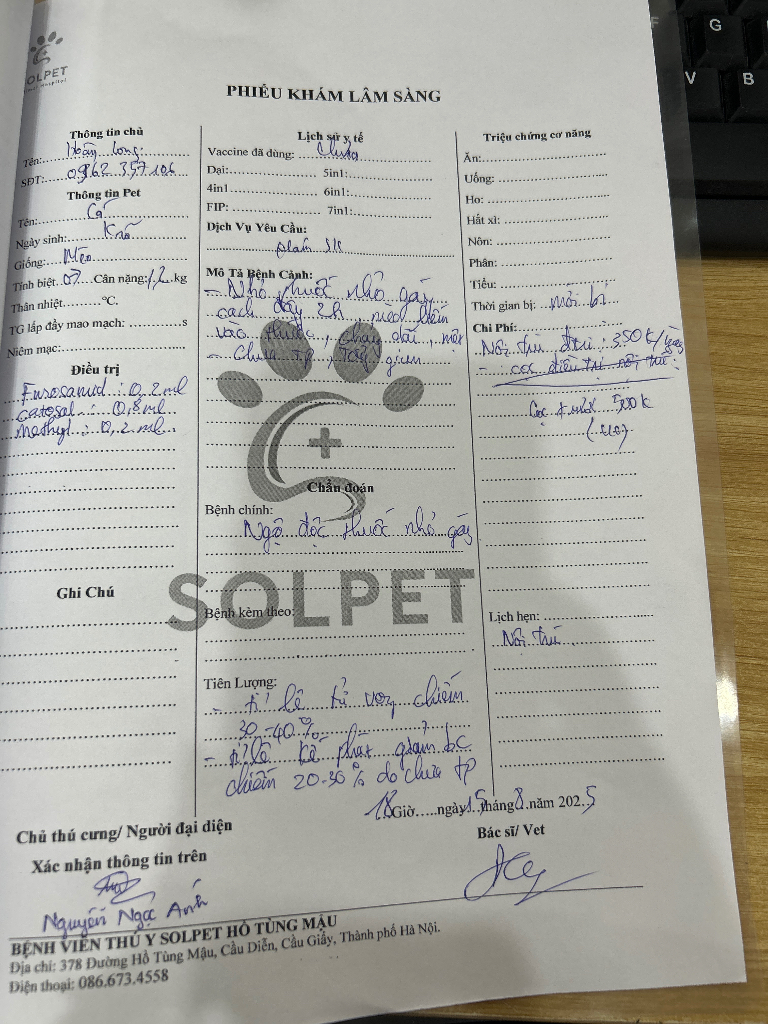 SOLPET
PHIẾU KHÁM LÂM SÀNG
Thông tin chủ
Tên: Hoàng Long
SĐT: 0962 357 106
Thông tin Pet
Tên: Cá
Ngày sinh:
Giống: Mèo
Tính biệt: Cân nặng: 1,2 kg
Thân nhiệt..........°C.
TG lấp đầy mao mạch: ..............s
Niêm mạc:
Điều trị
Furosamid : 0,2 ml
catosal : 0,8 ml
Methyl : 0,2 ml
Ghi Chú
Lịch sử y tế
Vaccine đã dùng: Chưa
Dại: 5in1:
4in1 6in1:
FIP: 7in1:
Dịch Vụ Yêu Cầu:
khám SK
Mô Tả Bệnh Cảnh:
- Nhỏ thuốc nhỏ gáy
cách đây 2h, mèo liếm
vào thuốc, chảy dãi, mệt
- Chưa TP, Tẩy giun
Chẩn đoán
Bệnh chính:
Ngộ độc thuốc nhỏ gáy
SOLPET
Bệnh kèm theo:
Tiên Lượng:
- tỉ lệ tử vong chiếm
30-40%
- tỉ lệ kế phát giảm bc
chiếm 20-30% do chưa TP
Triệu chứng cơ năng
Ăn:
Uống:
Ho:
Hắt xì:
Nôn:
Phân:
Tiểu:
Thời gian bị: mới bị
Chi Phí:
Nội trú đtrị : 350k/ngày
- cọc điều trị nội trú:
Cọc 500k
Lịch hẹn:
Nội trú
18 Giờ.....ngày 15 tháng 8 năm 2025
Chủ thú cưng/ Người đại diện
Xác nhận thông tin trên
Nguyễn Ngọc Anh
Bác sĩ/ Vet
BỆNH VIỆN THÚ Y SOLPET HỒ TÙNG MẬU
Địa chỉ: 378 Đường Hồ Tùng Mậu, Cầu Diễn, Cầu Giấy, Thành phố Hà Nội.
Điện thoại: 086.673.4558
G
V
B